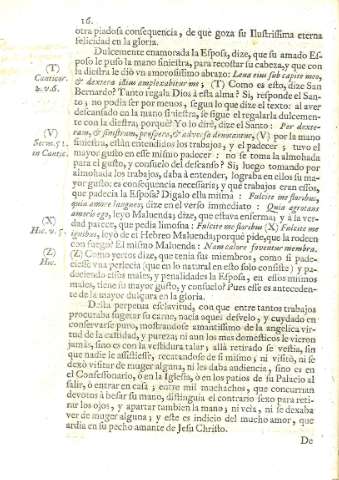 16.
otra piadosa consequencia, de que goza su Ilustrissima eterna
felicidad en la gloria.
Dulcemente enamorada la Esposa, dize, que su amado Es-
poso le puso la mano siniestra, para recostar su cabeza, y que con
la diestra le diò vn amorosissimo abrazo: Læva eius sub capite meo,
(T)
Canticor.
2. v. 6.
& dextera illius amplexabitur me; (T) Como es esto, dize San
Bernardo? Tanto regala Dios à esta alma? Si, responde el San-
to, no podia ser por menos, segun lo que dize el texto: al aver
descansado en la mano siniestra, se sigue el regalarla dulcemen-
te con la diestra, porquè? Yo lo dirè, dize el Santo: Per dexte-
(V)
Serm. 51.
in Cantic.
ram, & sinistram, prospera, & adversa denotantur, (V) por la mano
siniestra, estàn entendidos los trabajos, y el padecer; tuvo el
mayor gusto en esse mismo padecer: no se toma la almohada
para el gusto, y consuelo del descanso? Si; luego tomando por
almohada los trabajos, daba à entender, lograba en ellos su ma-
yor gusto; es consequencia necessaria; y què trabajos eran essos,
que padecia la Esposa? Digalo ella misma: Fulcite me floribus,
quia amore langueo; dize en el verso immediato: Quia ægrotans
amoris ego, leyò Maluenda; dize, que estava enferma; y à la ver-
(X)
Hic. v. 5.
dad parece, que pedia limosna: Fulcite me floribus (X) Fulcite me
ignibus, leyò de el Hebreo Maluenda; porquè pide, que la rodeen
con fuego? El mismo Maluenda: Nam calore foventur membra.
(Z)
Hic.
(Z) Como yertos dize, que tenia sus miembros, como si pade-
ciesse vna parlecia (que en lo natural en esto solo consiste) y pa-
deciendo essos males, y penalidades la Esposa, en essos mismos
males, tiene su mayor gusto, y consuelo? Pues esse es anteceden-
te de la mayor dulzura en la gloria.
Desta perpetua esclavitud, con que entre tantos trabajos
procuraba sugetar su carne, nacia aquel desvelo, y cuydado en
conservarse puro, mostrandose amantissimo de la angelica vir-
tud de la castidad, y pureza; ni aun los mas domesticos le vieron
jamàs, sino es con la vestidura talar; allà retirado se vestia, sin
que nadie le assistiesse, recatandose de si mismo; ni visitò, ni se
dexò visitar de muger alguna, ni les daba audiencia, sino es en
el Confessonario, ò en la Iglesia, ò en los patios de su Palacio al
salir, ò entrar en casa; entre mil muchachos, que concurrian
devotos à besar su mano, distinguia el contrario sexo para reti-
rar los ojos, y apartar tambien la mano; ni veia, ni se dexaba
ver de muger alguna; y este es indicio del mucho amor, que
ardia en su pecho amante de Jesu Christo.
De